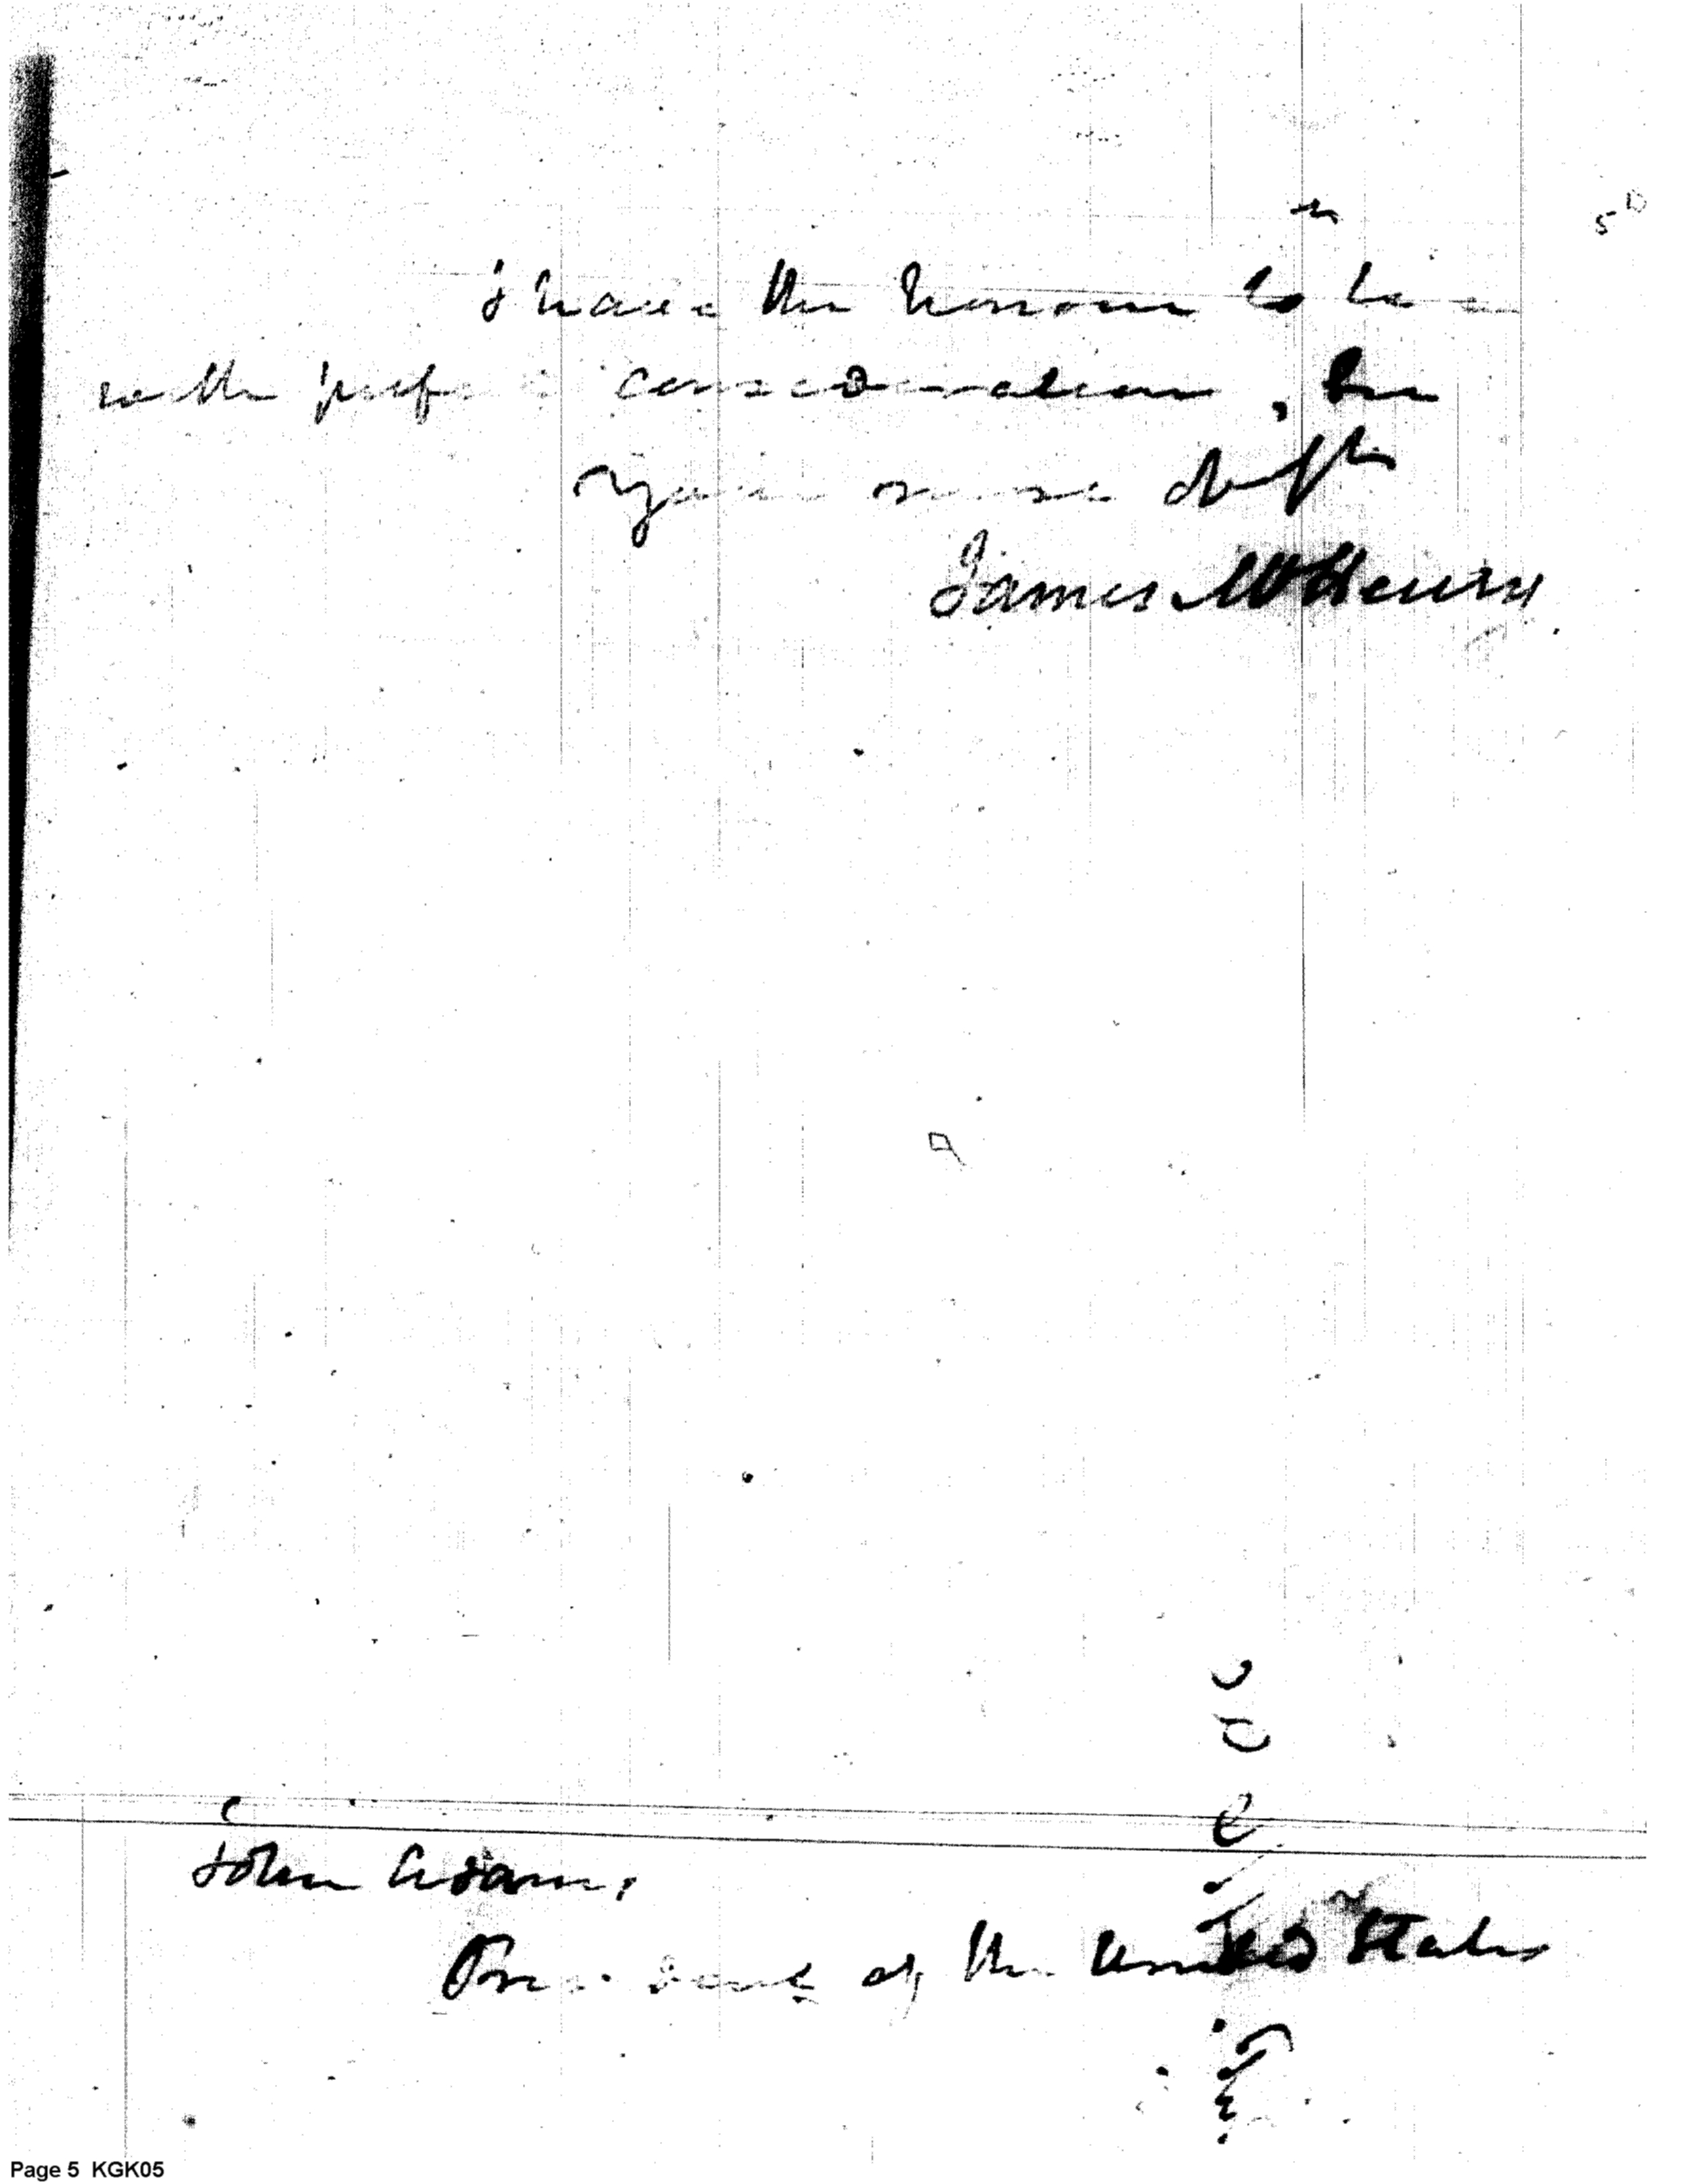 5
I have the honour to be
with perf consideration, Sir
Your most obt
James McHenry
John Adams,
President of the United States
Page 5 KGK05